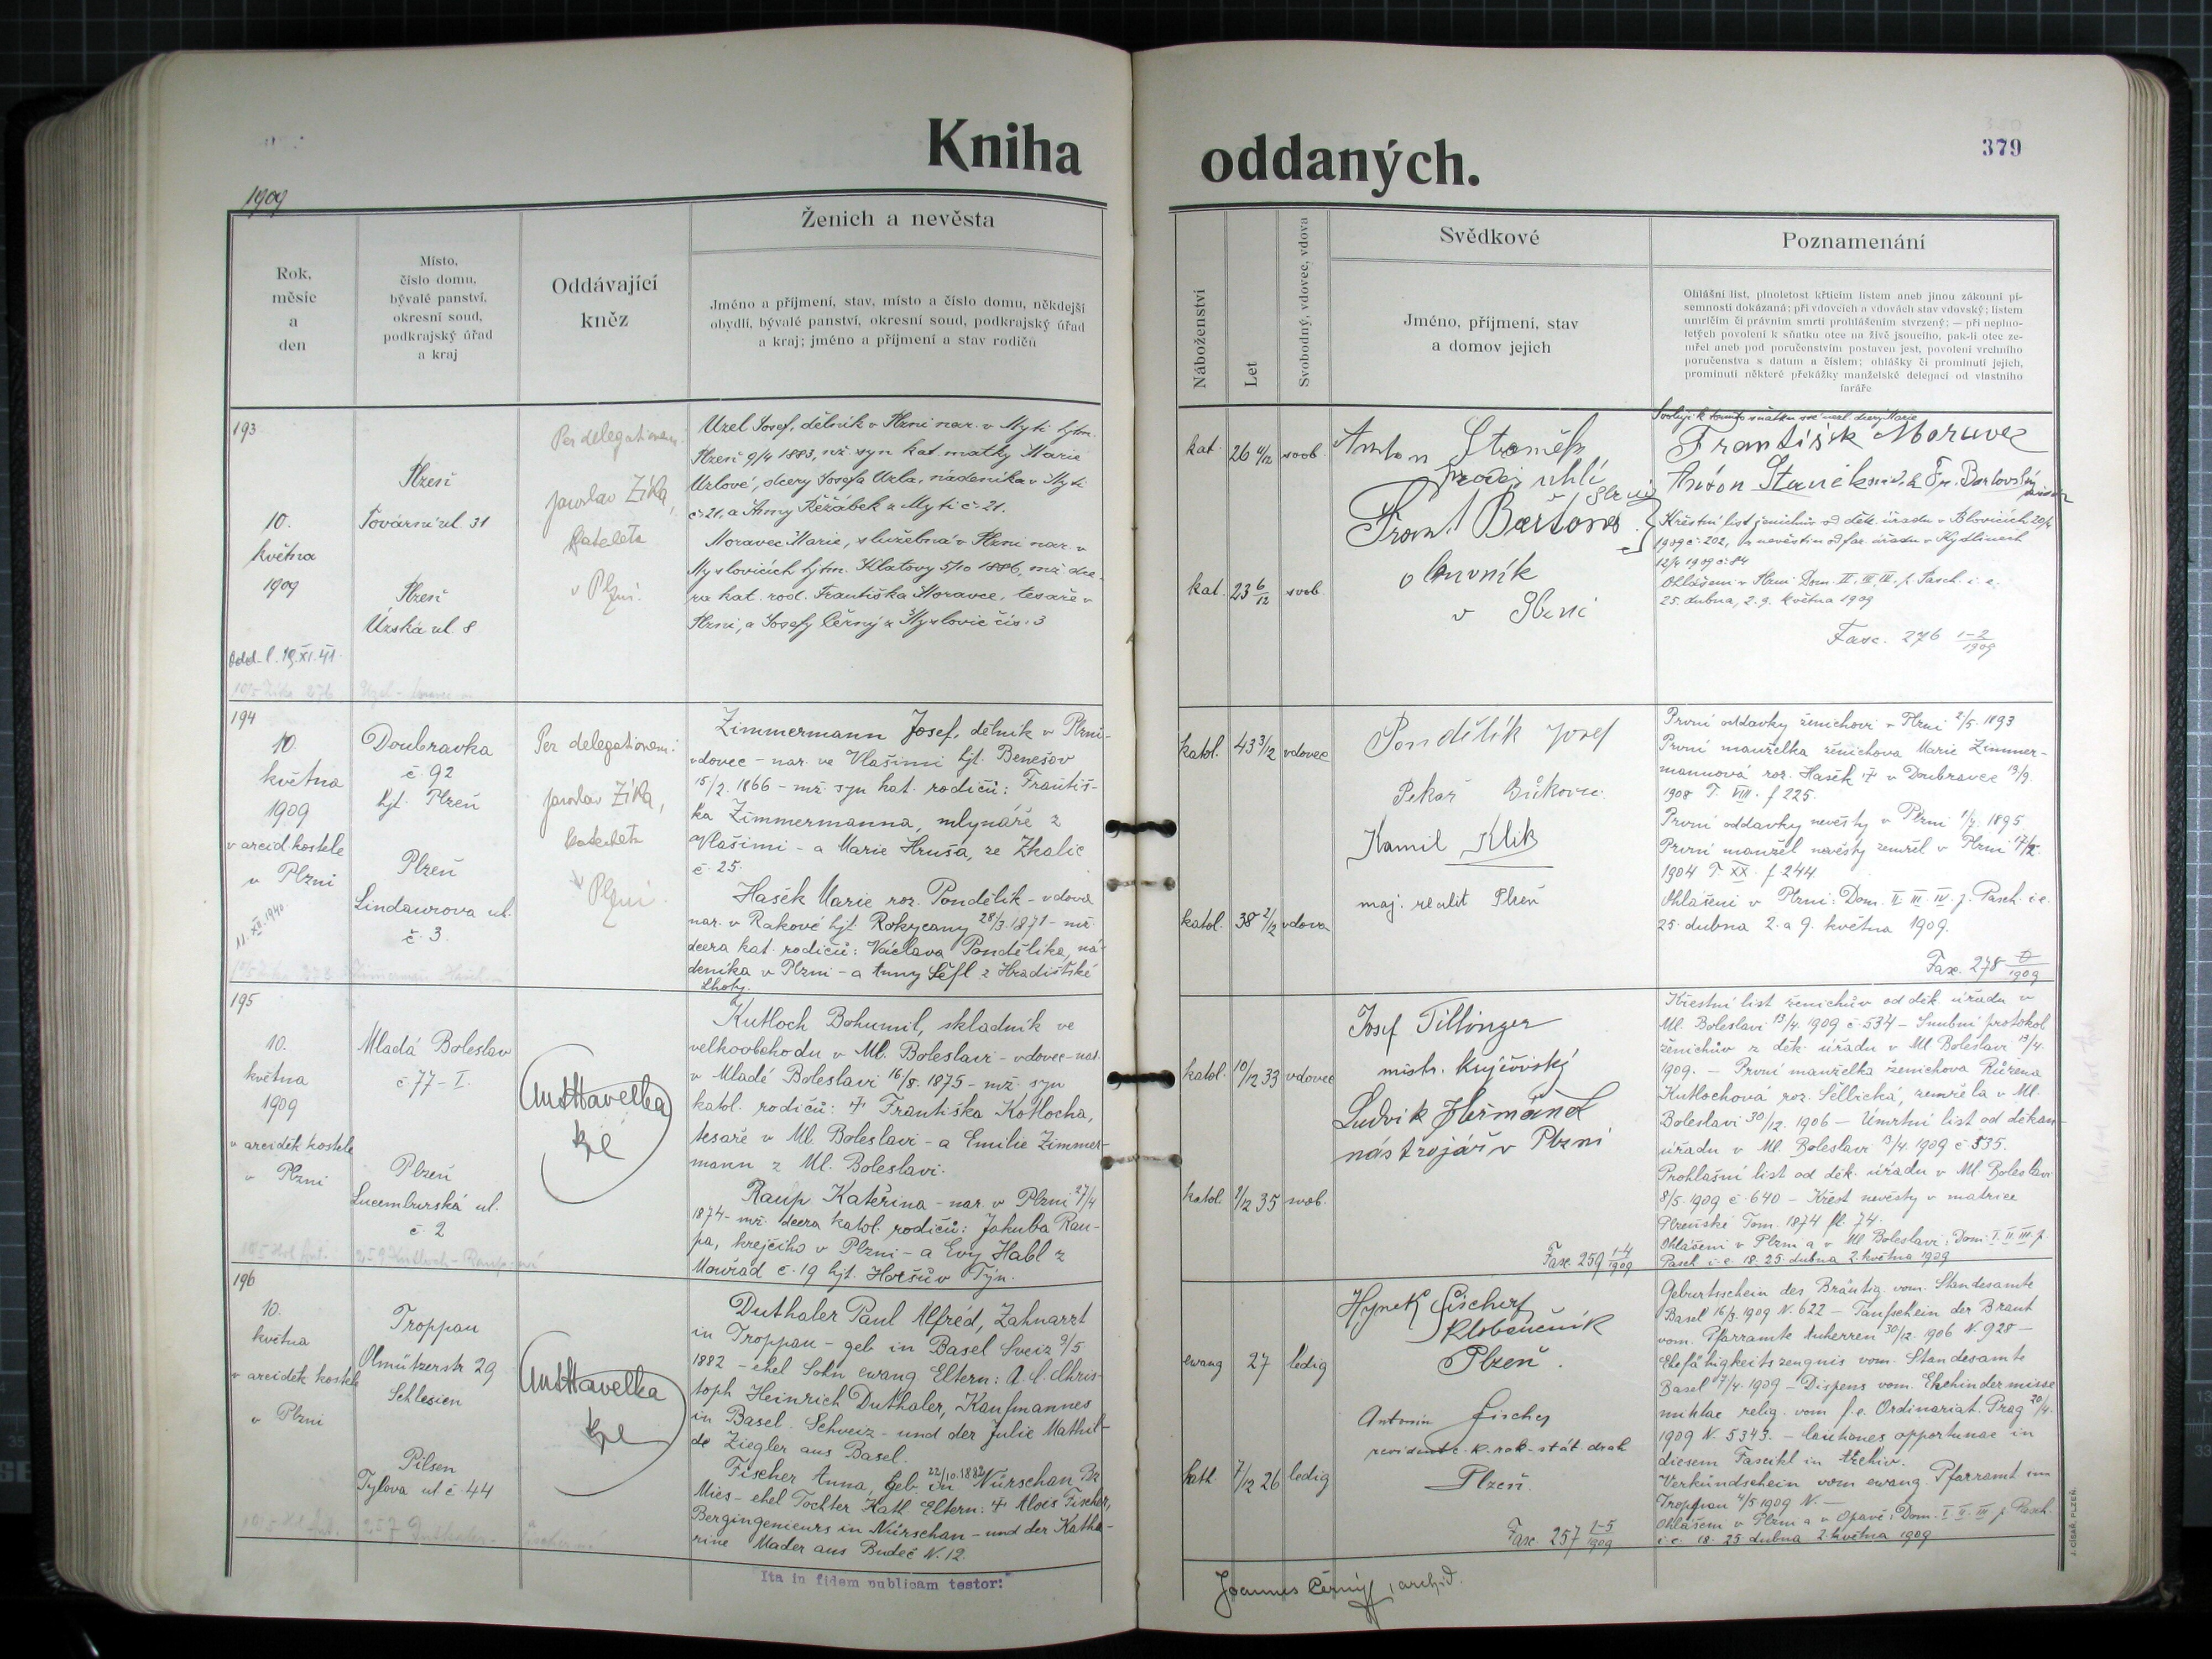 Kniha oddaných.
379
1909
Rok,
měsíc
a
den
Místo,
číslo domu,
bývalé panství,
okresní soud,
podkrajský úřad
a kraj
Oddávající
kněz
Ženich a nevěsta
Jméno a příjmení, stav, místo a číslo domu, někdejší
obydlí, bývalé panství, okresní soud, podkrajský úřad
a kraj; jméno a příjmení a stav rodičů
Náboženství
Let
Svobodný, vdovec, vdova
Svědkové
Jméno, příjmení, stav
a domov jejich
Poznamenání
Ohlášní list, plnoletost křticím listem aneb jinou zákonní pí-
semností dokázaná; při vdovcích a vdovách stav vdovský; listem
umrlčím či právním smrti prohlášením stvrzený; — při neplno-
letých povolení k sňatku otce na živě jsoucího, pak-li otec ze-
mřel aneb pod poručenstvím postaven jest, povolení vrchního
poručenstva s datum a číslem; ohlášky či prominutí jejich,
prominutí některé překážky manželské delegací od vlastního
faráře
193
10.
května
1909
Odd. l. 19.XI.41.
Plzeň
Tovární ul. 31
Plzeň
Úzská ul. 8
Per delegationem:
Jaroslav Zíka,
katecheta
v Plzni.
Uzel Josef, dělník v Plzni nar. v Mýti hjtm.
Plzeň 9/4 1883, mž. syn kat. matky Marie
Uzlové, dcery Josefa Uzla, nádeníka v Mýti
č. 21, a Anny Řežábek z Mýti č. 21.
Moravec Marie, služebná v Plzni nar. v
Myslovicích hjtm. Klatovy 5/10 1886, mž. dce-
ra kat. rod. Františka Moravce, tesaře v
Plzni, a Josefy Černý z Myslovic čís. 3
kat. 26 4/12 svob.
kat. 23 6/12 svob.
Anton
prodej uhlí
Frant Bartovs
obuvník
v Plzni
Svoluji k tomuto sňatku své nezl. dcery Marie
František Moravec
Křestní list ženichův od děk. úřadu v Blovicích 20/4
1909 č. 202, kř. nevěstin od far. úřadu v Kydlinech
12/4 1909 č. 84
Ohlášeni v Plzni Dom. II. III. IV. p. Pasch. i. e.
25. dubna, 2. 9. května 1909
Fasc. 276 1-2/1909
194
10.
května
1909
v arcid kostele
v Plzni
11. XII. 1940.
Doubravka
č 92
hjt. Plzeň
Plzeň
Lindaurova ul.
č. 3.
Per delegationem:
Jaroslav Zíka,
katecheta
v Plzni.
Zimmermann Josef, dělník v Plzni-
vdovec - nar. ve Vlašimi hjt. Benešov
15/2. 1866 - mž. syn kat. rodičů: Františ-
ka Zimmermanna, mlynáře z
Vlašimi - a Marie Hruša, ze Zkalic
č. 25.
Hašek Marie roz. Pondělík - vdova
nar. v Rakové hjt. Rokycany 28/3. 1871 - mž.
dcera kat. rodičů: Václava Pondělíka, ná-
deníka v Plzni - a Anny Šéfl z Hradišťské
Lhoty.
katol. 43 3/12 vdovec
katol. 38 2/12 vdova
Pondělík Josef
Pekař
Kamil Klik
maj. realit Plzeň
První oddavky ženichovi v Plzni 2/5. 1893
První manželka ženichova Marie Zimmer-
mannová roz. Hašek † v Doubravce 13/9.
1908 T. VIII. f 225.
První oddavky nevěsty v Plzni 1/7. 1895
První manžel nevěsty zemřel v Plzni 17/12.
1904 T. XX. f 244
Ohlášeni v Plzni: Dom. II. III. IV. p. Pasch. i. e.
25. dubna 2. a 9. května 1909.
Fasc. 278 0/1909
195
10.
května
1909
v arciděk kostele
v Plzni
Mladá Boleslav
č. 77 - I.
Plzeň
Lucemburská ul.
č. 2
Ant Havelka
Kutloch Bohumil, skladník ve
velkoobchodu v Ml. Boleslavi - vdovec - nar.
v Mladé Boleslavi 16/8. 1875 - mž. syn
katol. rodičů: † Františka Kotlocha,
tesaře v Ml. Boleslavi - a Emilie Zimmer-
mann z Ml. Boleslavi.
Raup Kateřina - nar. v Plzni 27/4
1874 - mž. dcera katol. rodičů: Jakuba Rau-
pa, krejčího v Plzni - a Evy Habl z
Mouřad č. 19 hjt. Horšův Týn.
katol. 10/12 33 vdovec
katol. 1/12 35 svob.
Josef Tillinger
mistr. krejčovský
Ludvik Heřmánek
nástrojář v Plzni
Křestní list ženichův od děk. úřadu v
Ml. Boleslavi 13/4. 1909 č 534 - Snubní protokol
ženichův z děk. úřadu v Ml Boleslavi 13/4.
1909. - První manželka ženichova Růžena
Kutlochová roz. Sellická, zemřela v Ml.
Boleslavi 30/12. 1906 - Úmrtní list od děkan-
úřadu v Ml. Boleslavi 13/4. 1909 č 535.
Prohlašní list od děk. úřadu v Ml. Boleslavi
8/5. 1909 č. 640 - Křest nevěsty v matrice
Plzeňské Tom. 1874 fl. 74.
Ohlášeni v Plzni a v Ml Boleslavi: Dom. I. II. III. p.
Pasch i. e. 18. 25. dubna 2. května 1909
Fasc. 259 1-4/1909
196
10.
května
v arciděk kostele
v Plzni
Troppau
Olmützerstr 29
Schlesien
Pilsen
Tylova ul č 44
Ant Havelka
Duthaler Paul Alfréd, Zahnarzt
in Troppau - geb in Basel Sveiz 9/5
1882 - ehel Sohn ewang Eltern: A. C. Chris-
toph Heinrich Duthaler, Kaufmannes
in Basel. Schveiz - und der Julie Mathil-
de Ziegler aus Basel.
Fischer Anna, geb. 22/10. 1882 in Nürschan Bz
Mies - ehel Tochter Kath Eltern: † Alois Fischer,
Bergingenieurs in Nürschan - und der Katha-
rine Mader aus Budeč N. 12.
ewang 27 ledig
kath. 7/12 26 ledig
Hynek Fischer
kloboučník
Plzeň.
Antonín Fischer
revident c. k. rak. stát. drah
Plzeň.
Geburtsschein des Bräutig. vom. Standesamte
Basel 16/3. 1909 N. 622 - Taufschein der Braut
vom. Pfarramte Auherren 30/12. 1906 N. 928 -
Ehefähigkeitszeugnis vom. Standesamte
Basel 7/4. 1909 - Dispens vom. Ehehindernisse
mixtae relig. vom f. e. Ordinariat. Prag 20/4.
1909 N. 5343. - Cautiones opportunae in
diesem Fascikl in Archiv.
Verkündschein vom ewang. Pfarramt im
Troppau 4/5 1909 N. -
Ohlášeni v Plzni a v Opavě: Dom. I. II. III. p. Pasch.
i. e. 18. 25. dubna 2. května 1909
Fasc. 257 1-5/1909
"Ita in fidem publicam testor:"
Joannes Černý, archid.
J. CÍSAŘ, PLZEŇ.